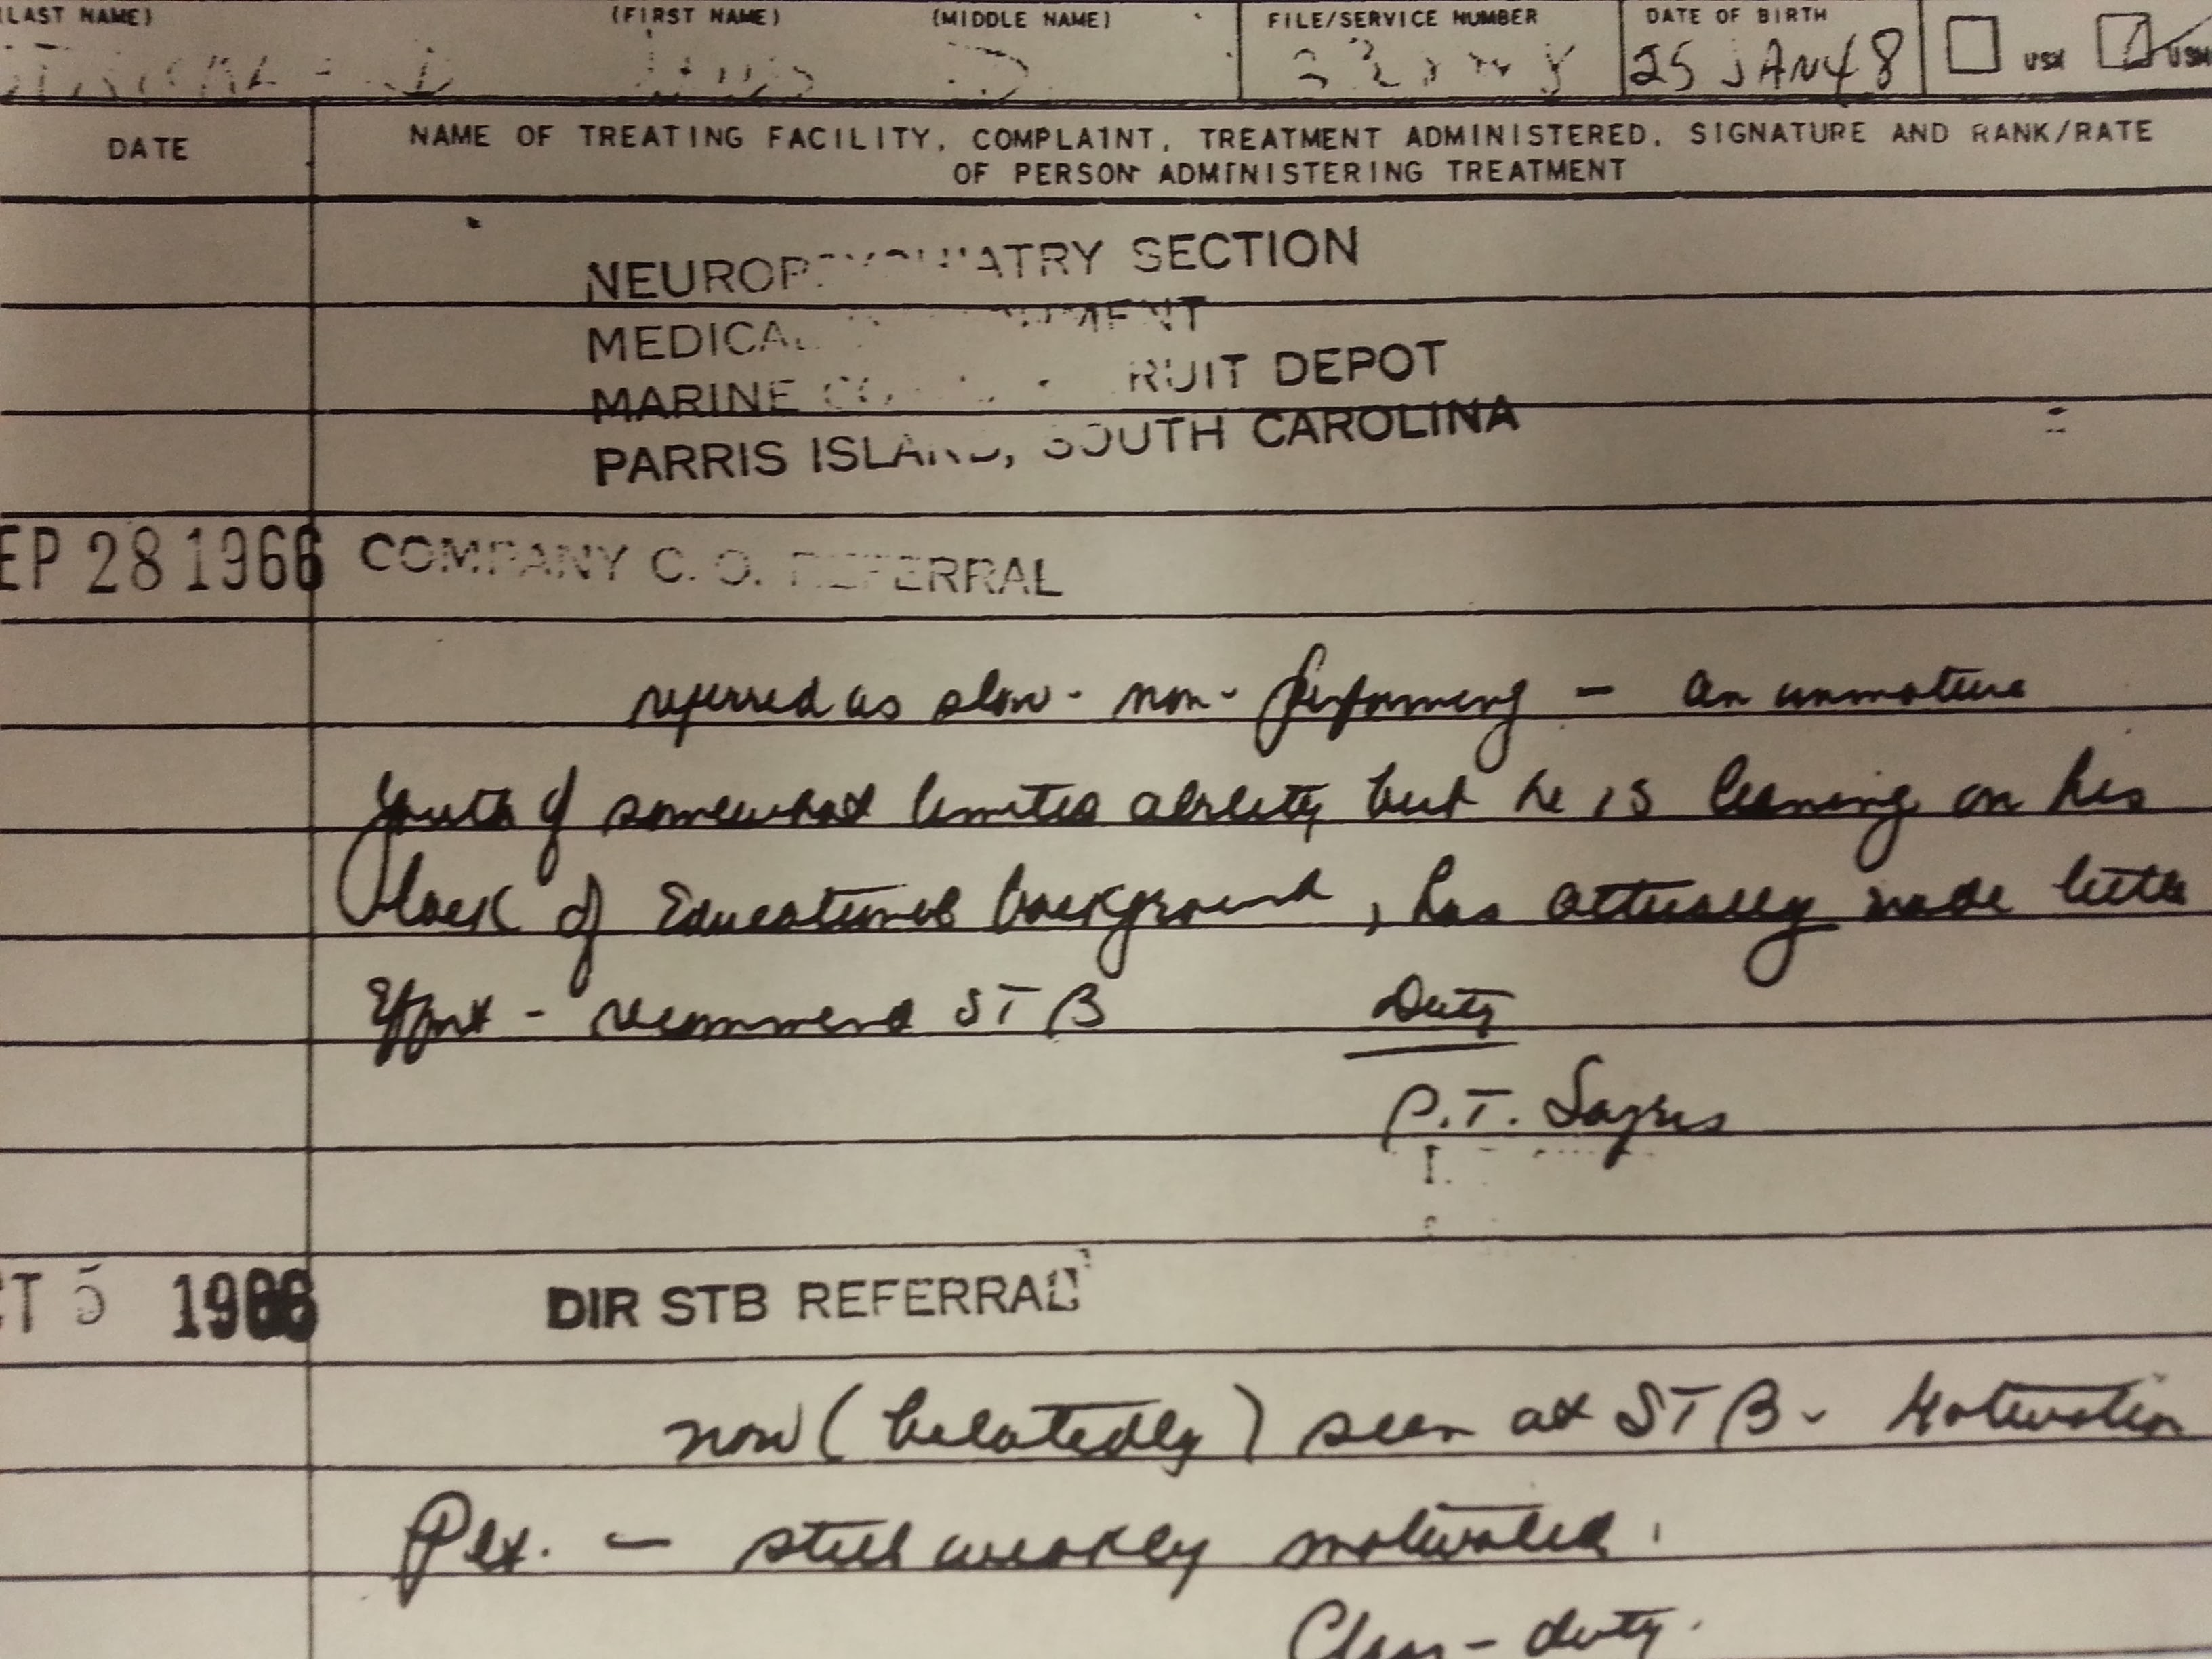 (LAST NAME) (FIRST NAME) (MIDDLE NAME) FILE/SERVICE NUMBER DATE OF BIRTH
D. 25 JAN 48 USN USM
DATE NAME OF TREATING FACILITY, COMPLAINT, TREATMENT ADMINISTERED, SIGNATURE AND RANK/RATE
OF PERSON ADMINISTERING TREATMENT
NEUROPSYCHIATRY SECTION
MEDICAL
MARINE RUIT DEPOT
PARRIS ISLAND, SOUTH CAROLINA
EP 28 1966 COMPANY C. O. REFERRAL
referred as slow - non - performing - an immature
youth of somewhat limited ability but he is leaning on his
lack of Educational background, has actually made little
Effort - recommend STB Duty
P.T. Sayres
CT 5 1966 DIR STB REFERRAL
now (belatedly) seen at STB - Motivation
Plt. - still weakly motivated.
- duty.